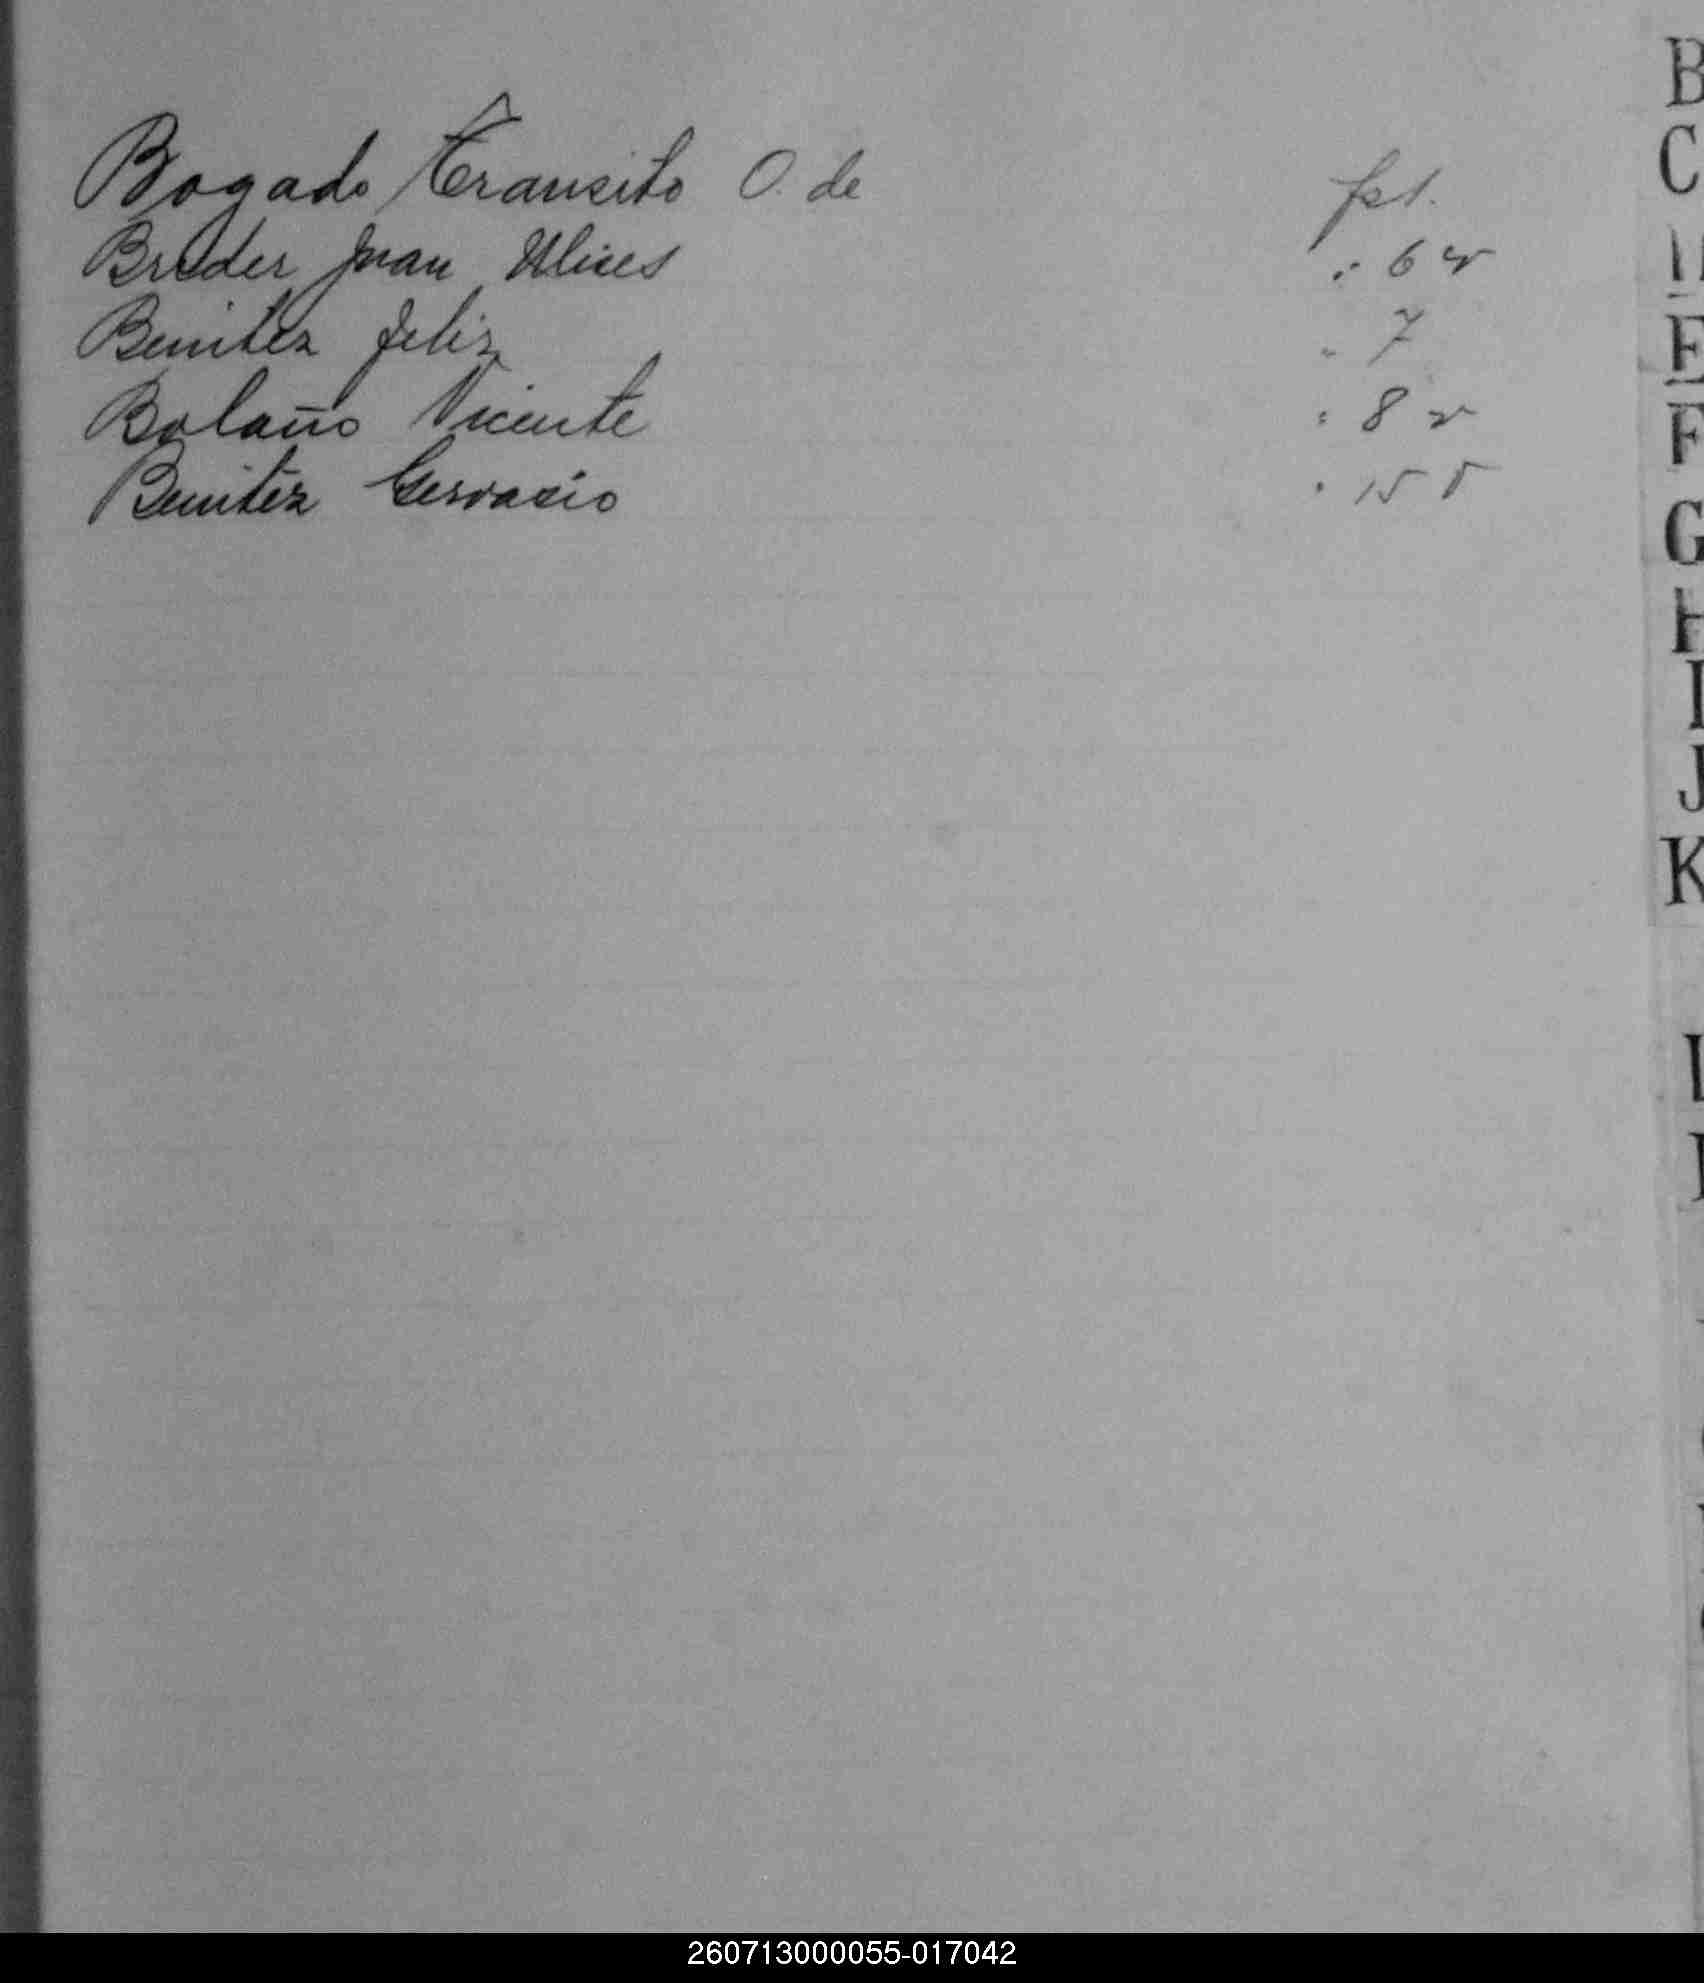 Bogado Transito O. de fol.
Breder Juan Ulices " 6 v
Benitez Feliz " 7
Bolaño Vicente " 8 v
Benitez Gervacio " 15 v
B
C
E
F
G
H
I
J
K
L
260713000055-017042